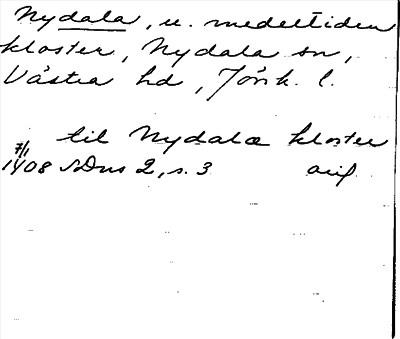 Nydala, u. medeltiden
kloster, Nydala sn,
Västra hd, Jönk. l.
til Nydala kloster
7/1
1408 SDns 2, s. 3